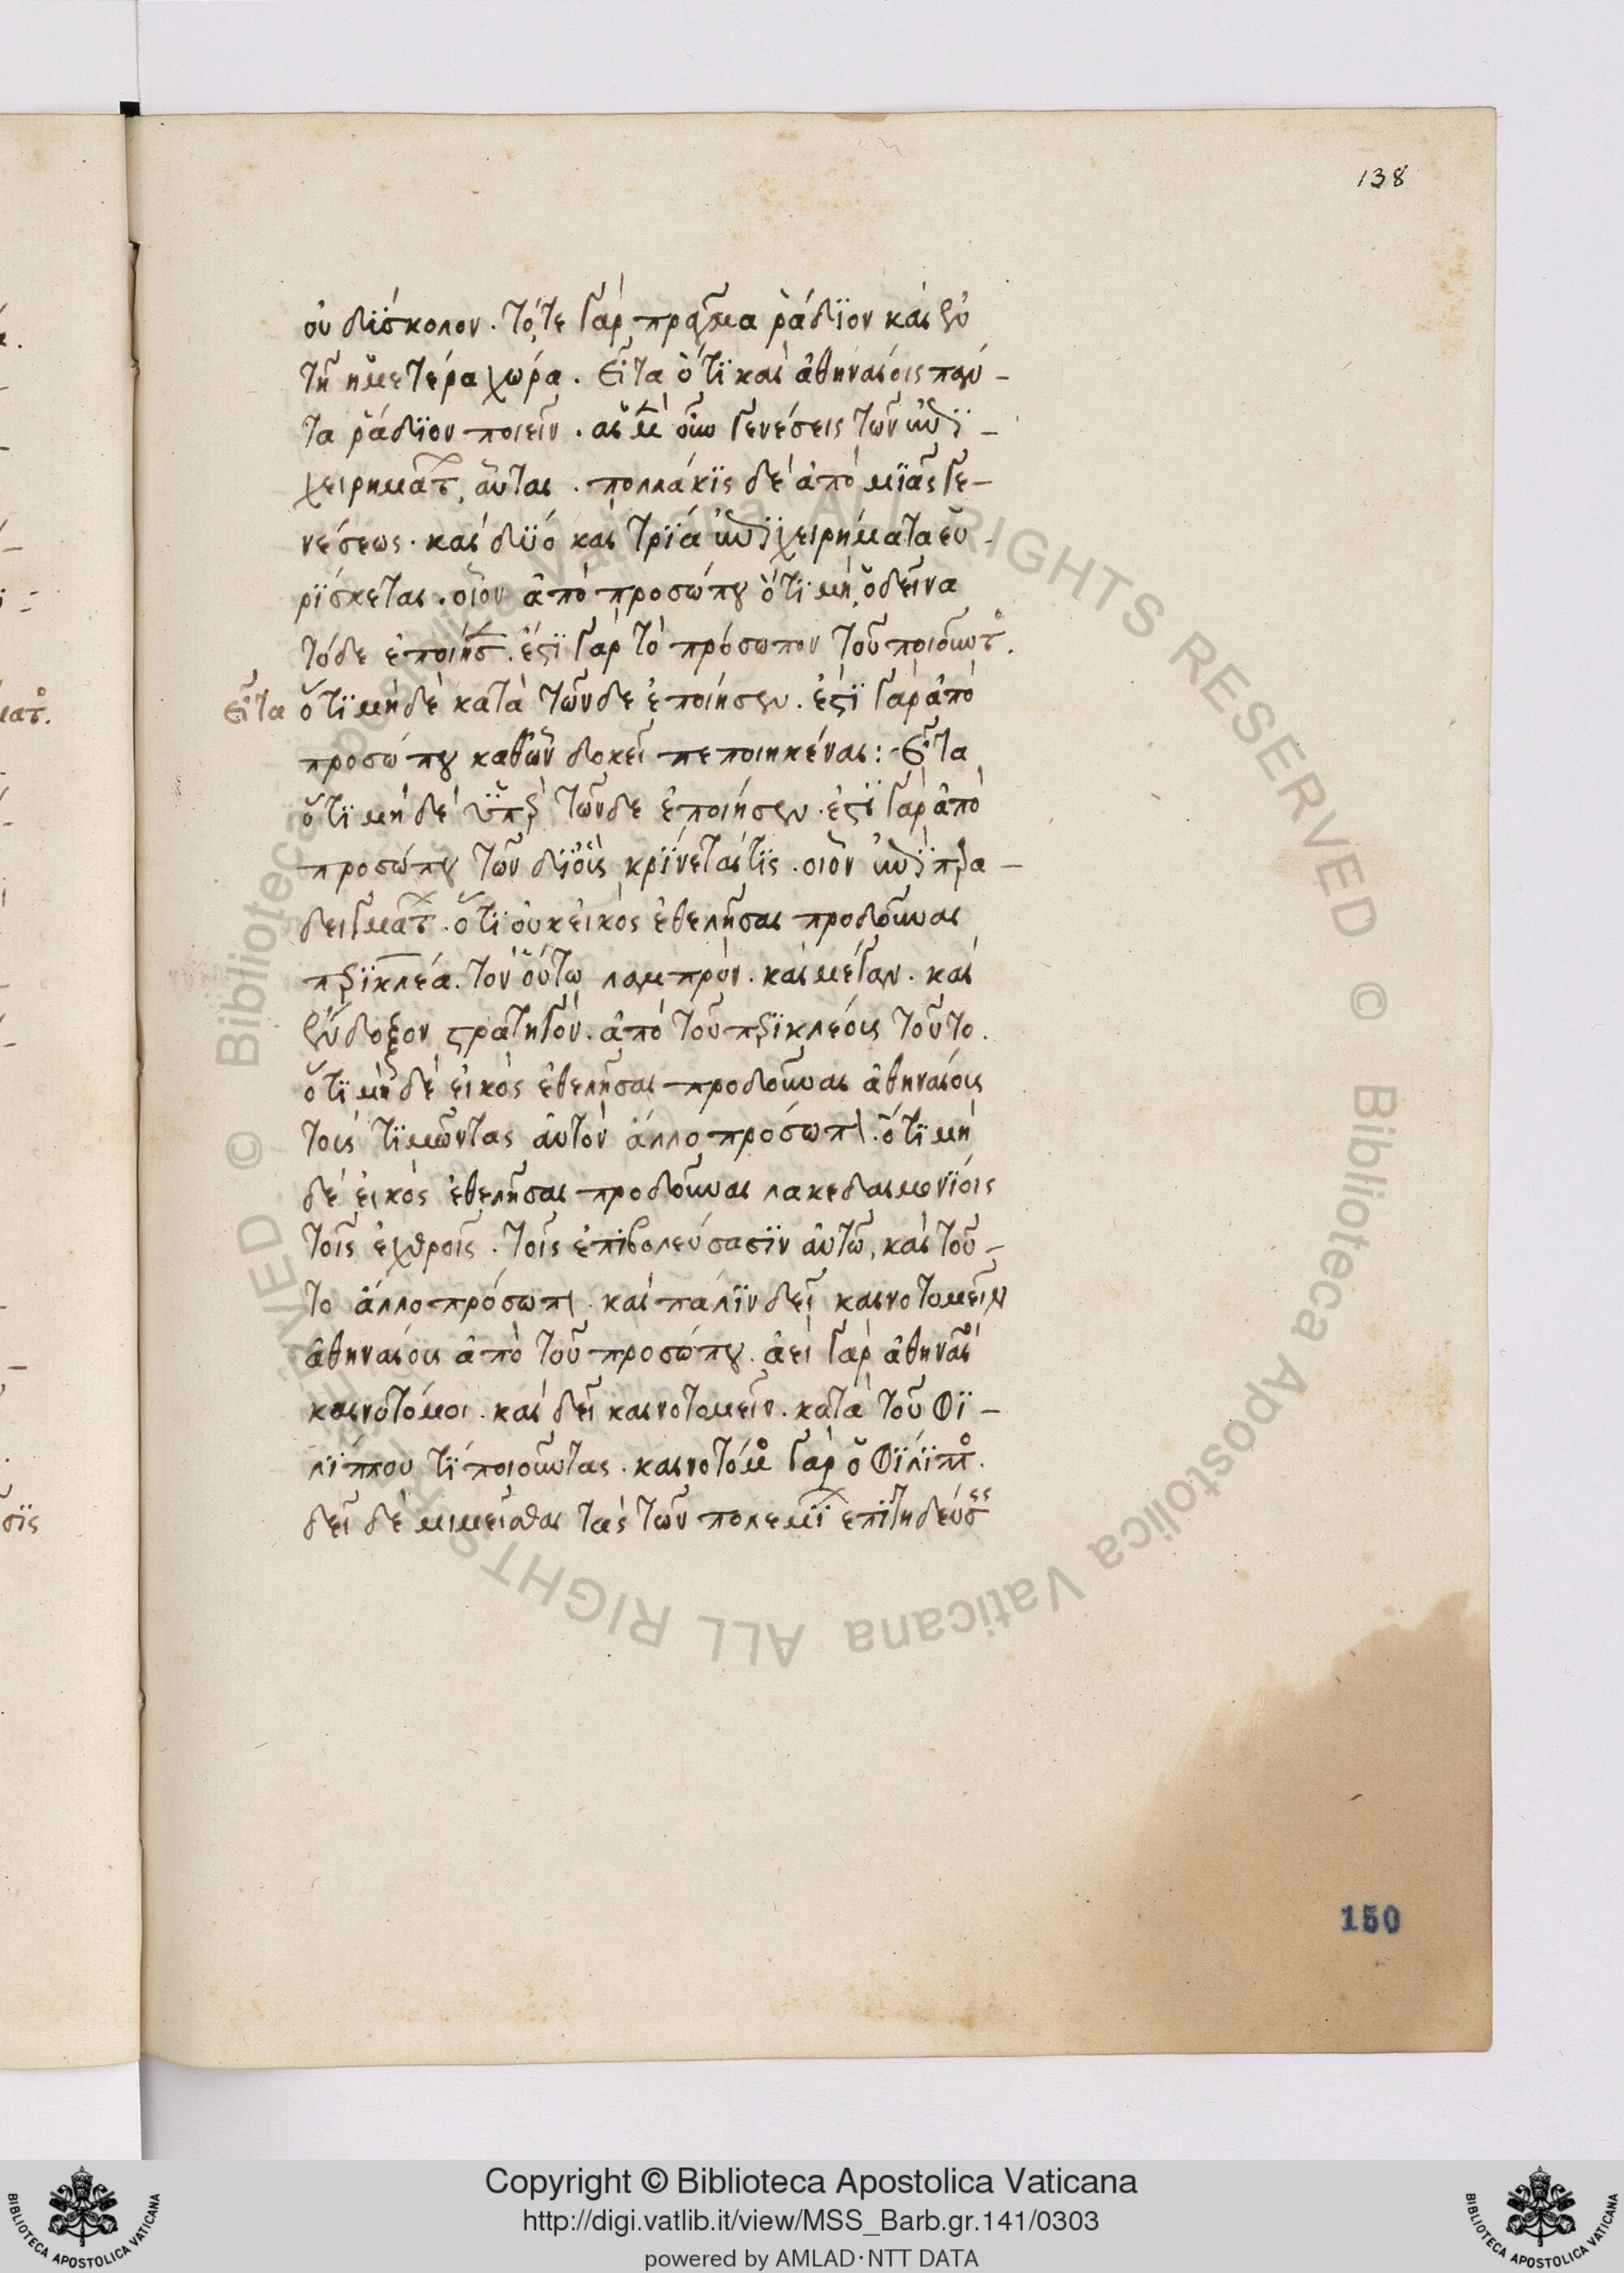 138
οὐ δϊσκολον. τό,τε γὰρ πρᾶγμα ῥάδϊον καὶ ἐν
τῆ ἡμετέρα χώρα. Εἶτα ὅτϊ καὶ ἀθηναίοις πάν-
τα ῥάδϊον ποιεῖν. αἱ μὲν οὖν γενέσεις τῶν ἐνθϊ-
χειρημάτ, αὗται. πολλάκϊς δὲ ἀπὸ μϊᾶς γε-
νέσεως. καὶ δϋό καὶ τρϊα ἐνθϊχειρήματα εὑ-
ρϊσκεται. οἷον ἀπὸ προσώπου ὅτϊ μὴ, ὁ δεῖνα
τόδε ἐποίησ. ἔστϊ γὰρ τὸ πρόσωπον τοῦ ποιοῦντ.
Εἶτα ὅτϊ μὴ δὲ κατὰ τῶνδε ἐποίησεν. ἐστϊ γὰρ ἀπὸ
προσώπου καθ' ὧν δοκεῖ πεποιηκέναι: Εἶτα
ὅτϊ μὴ δὲ ϋπὲρ τῶνδε ἐποίησεν. ἐστϊ γὰρ ἀπὸ
προσώπου τῶν δϊ' οἷς κρϊνεταί τϊς. οἷον ἐνθϊ παρα-
δειγμάτ. ὅτϊ οὐκ εἰκὸς ἐθελῆσαι προδοῦναι
περϊκλέα. τὸν οὕτω λαμπρὸν. καὶ μέγαν. καὶ
ἔνδοξον στρατηγὸν. ἀπὸ τοῦ περϊκλέοις τοῦτο.
ὅτϊ μὴ δὲ εἰκὸς ἐθελῆσαι προδοῦναι ἀθηναίοις
τοὶς τϊμῶντας αὐτὸν ἀλλοπρόσωπ. ὅτϊ μὴ
δὲ εἰκὸς ἐθελῆσαι προδοῦναι λακεδαιμονϊοις
τοῖς ἐχθροῖς. τοῖς ἐπϊβολεύσασϊν αὐτῶ, καὶ τοῦ-
το ἀλλοπρόσωπ. καὶ πάλϊν δεῖ καινοτομεῖν
ἀθηναίοις ἀπὸ τοῦ προσώπου. ἀεὶ γὰρ ἀθηναῖοι
καινοτόμοι. καὶ δεῖ καινοτομεῖν. κατὰ τοῦ Φϊ-
λϊππου τϊ ποιοῦντας. καινοτόμος γὰρ ὁ Φϊλϊππος.
δεῖ δὲ μιμεῖσθαι τὰς τῶν πολεμϊ ἐπϊτηδεύσεις
150
Copyright © Biblioteca Apostolica Vaticana
http://digi.vatlib.it/view/MSS_Barb.gr.141/0303
powered by AMLAD·NTT DATA